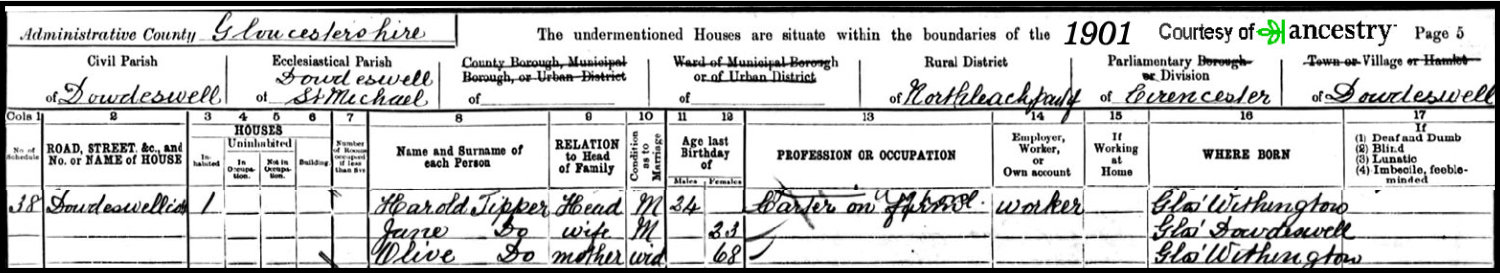 Administrative County Gloucestershire The undermentioned Houses are situate within the boundaries of the 1901 Courtesy of ancestry Page 5
Civil Parish Ecclesiastical Parish County Borough, Municipal Borough, or Urban District Ward of Municipal Borough or of Urban District Rural District Parliamentary Borough or Division Town or Village or Hamlet
of Dowdeswell of Dowdeswell St Michael of of of Northleach of Cirencester of Dowdeswell
Cols 1 2 3 4 5 6 7 8 9 10 11 12 13 14 15 16 17
No. of Schedule ROAD, STREET, &c., and No. or NAME of HOUSE HOUSES Inhabited Uninhabited In Occupation. Not in Occupation. Building. Number of Rooms occupied if less than five Name and Surname of each Person RELATION to Head of Family Condition as to Marriage Age last Birthday of Males Females PROFESSION OR OCCUPATION Employer, Worker, or Own account If Working at Home WHERE BORN If (1) Deaf and Dumb (2) Blind (3) Lunatic (4) Imbecile, feeble-minded
38 1 Harold Tipper Head M 24 Carter on Farm worker Glos Withington
Jane Do wife M 23 Glos Dowdeswell
Olive Do mother wid 68 Glos Withington